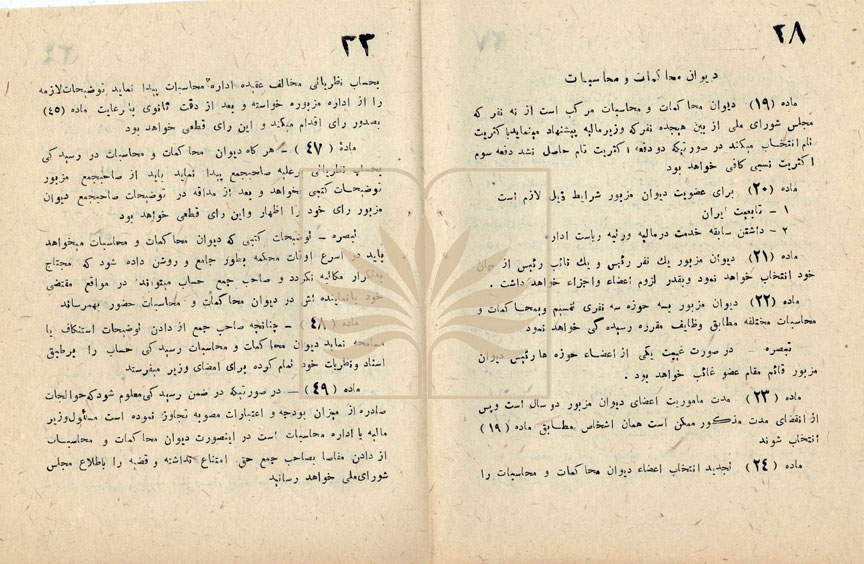 ۲۸
دیوان محاکمات و محاسبات
ماده (۱۹) دیوان محاکمات و محاسبات مرکب است از نه نفر که
مجلس شورای ملی از بین هیجده نفر که وزیر مالیه پیشنهاد مینماید با کثریت
تام انتخاب میکند در صورتیکه دو دفعه اکثریت تام حاصل نشد دفعه سوم
اکثریت نسبی کافی خواهد بود
ماده (۲۰) برای عضویت دیوان مزبور شرایط ذیل لازم است
۱ – تابعیت ایران
۲ – داشتن سابقه خدمت در مالیه ورتبه ریاست اداره
ماده (۲۱) دیوان مزبور یك نفر رئیس و یك نائب رئیس از میان
خود انتخاب خواهد نمود وبقدر لزوم اعضاء واجزاء خواهد داشت .
ماده (۲۲) دیوان مزبور بسه حوزه سه نفری تقسیم وبمحاکمات و
محاسبات مختلفه مطابق وظایف مقرره رسیدگی خواهد نمود
تبصره – در صورت غیبت یکی از اعضاء حوزه ها رئیس دیوان
مزبور قائم مقام عضو غائب خواهد بود .
ماده (۲۳) مدت ماموریت اعضای دیوان مزبور دو سال است وپس
از انقضای مدت مذکور ممکن است همان اشخاص مطابق ماده (۱۹)
انتخاب شوند
ماده (۲۴) تجدید انتخاب اعضاء دیوان محاکمات و محاسبات را
۳۳
بحساب نظریاتی مخالف عقیده اداره محاسبات پیدا نماید توضیحات لازمه
را از اداره مزبوره خواسته و بعد از دقت ثانوی با رعایت ماده (۴۵)
بصدور رای اقدام میکند و این رای قطعی خواهد بود
ماده (۴۷) – هر گاه دیوان محاکمات و محاسبات در رسیدگی
بحساب نظریاتی برعلیه صاحبجمع پیدا نماید باید از صاحبجمع مزبور
توضیحات کتبی خواهد و بعد از مداقه در توضیحات صاحبجمع دیوان
مزبور رای خود را اظهار واین رای قطعی خواهد بود
تبصره – توضیحات کتبی که دیوان محاکمات و محاسبات میخواهد
باید در اسرع اوقات محکمه بطور جامع و روشن داده شود که محتاج
بتکرار مکاتبه نگردد و صاحب جمع حساب میتواند در مواقع مقتضی
خود یا نماینده اش در دیوان محاکمات و محاسبات حضور بهمرساند
ماده (۴۸) – چنانچه صاحب جمع از دادن توضیحات استنکاف یا
مسامحه نماید دیوان محاکمات و محاسبات رسیدگی حساب را برطبق
اسناد ونظریات خود تمام کرده برای امضای وزیر میفرستد
ماده (۴۹) – در صورتیکه در ضمن رسیدگی معلوم شود که حوالجات
صادره از میزان بودجه و اعتبارات مصوبه تجاوز نموده است مسئول وزیر
مالیه یا اداره محاسبات است در اینصورت دیوان محاکمات و محاسبات
از دادن مفاصا بصاحب جمع حق امتناع نداشته و قضیه را باطلاع مجلس
شورای ملی خواهد رسانید